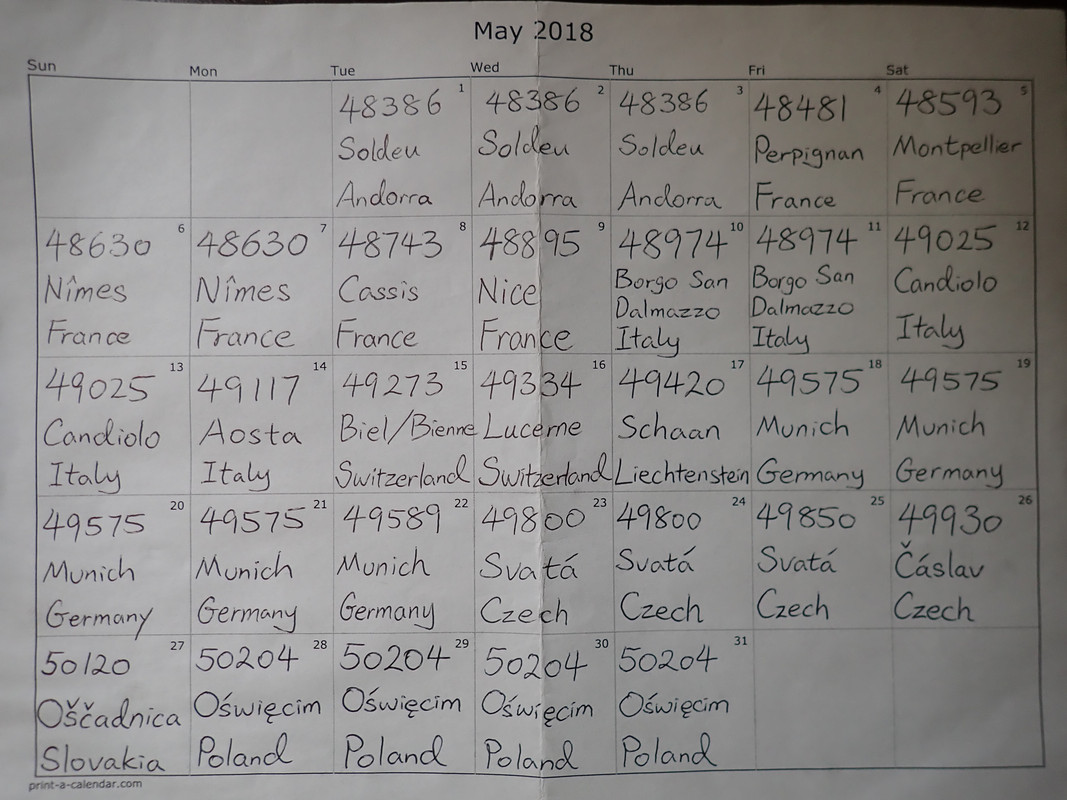 May 2018
Sun Mon Tue Wed Thu Fri Sat
1
48386
Soldeu
Andorra
2
48386
Soldeu
Andorra
3
48386
Soldeu
Andorra
4
48481
Perpignan
France
5
48593
Montpellier
France
6
48630
Nîmes
France
7
48630
Nîmes
France
8
48743
Cassis
France
9
48895
Nice
France
10
48974
Borgo San
Dalmazzo
Italy
11
48974
Borgo San
Dalmazzo
Italy
12
49025
Candiolo
Italy
13
49025
Candiolo
Italy
14
49117
Aosta
Italy
15
49273
Biel/Bienne
Switzerland
16
49334
Lucerne
Switzerland
17
49420
Schaan
Liechtenstein
18
49575
Munich
Germany
19
49575
Munich
Germany
20
49575
Munich
Germany
21
49575
Munich
Germany
22
49589
Munich
Germany
23
49800
Svatá
Czech
24
49800
Svatá
Czech
25
49850
Svatá
Czech
26
49930
Čáslav
Czech
27
50120
Oščadnica
Slovakia
28
50204
Oświęcim
Poland
29
50204
Oświęcim
Poland
30
50204
Oświęcim
Poland
31
50204
Oświęcim
Poland
print-a-calendar.com